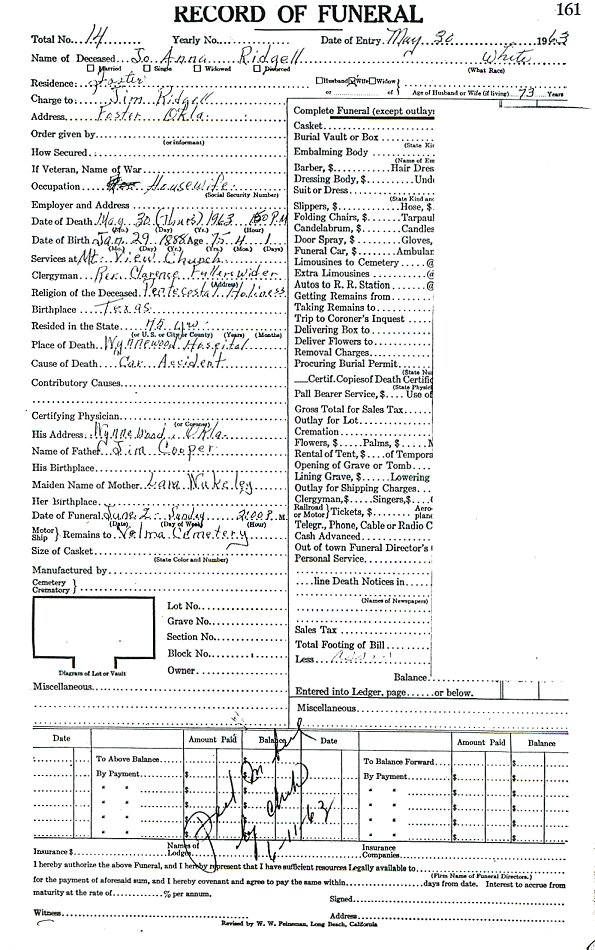 RECORD OF FUNERAL
161
Total No. 14 Yearly No. Date of Entry May 30 1963
Name of Deceased Jo Anna Ridgell White
Married Single Widowed Divorced (What Race)
Residence: Foster Husband Wife Widow
or of Age of Husband or Wife (if living) 73 Years
Charge to Jim Ridgell
Address Foster Okla
Order given by
(or informant)
How Secured
If Veteran, Name of War
Occupation Housewife
(Social Security Number)
Employer and Address
Date of Death May 30 (Thurs) 1963 P.M
(Mo.) (Day) (Yr.) (Hour)
Date of Birth Jan. 29 1888 Age 75 4 1
(Mo.) (Day) (Yr.) (Yrs.) (Mos.) (Days)
Services at Mt. View Church
Clergyman Rev. Clarence Fullenwider
(Address)
Religion of the Deceased Pentecostal Holiness
Birthplace Texas
Resided in the State 75 yrs.
(or U. S. or City or County) (Years) (Months)
Place of Death Wynnewood Hospital
Cause of Death Car Accident
Contributory Causes
Certifying Physician
(or Coroner)
His Address Wynnewood, Okla.
Name of Father Jim Cooper
His Birthplace
Maiden Name of Mother
Her Birthplace
Date of Funeral June 2 - Sunday 2:00 P. M.
(Date) (Day of Week) (Hour)
Motor Ship } Remains to Velma Cemetery
Size of Casket
(State Color and Number)
Manufactured by
Cemetery
Crematory }
Lot No.
Grave No.
Section No.
Block No.
Owner
Diagram of Lot or Vault
Miscellaneous
Complete Funeral (except outlays
Casket
Burial Vault or Box
(State Kin
Embalming Body
(Name of Em
Barber, $ Hair Dres
Dressing Body, $ Und
Suit or Dress
(State Kind and
Slippers, $ Hose, $
Folding Chairs, $ Tarpaul
Candelabrum, $ Candles
Door Spray, $ Gloves,
Funeral Car, $ Ambular
Limousines to Cemetery @
Extra Limousines @
Autos to R. R. Station @
Getting Remains from
Taking Remains to
Trip to Coroner's Inquest
Delivering Box to
Deliver Flowers to
Removal Charges
Procuring Burial Permit
(State Nu
Certif. Copies of Death Certific
(State Physici
Pall Bearer Service, $ Use of
Gross Total for Sales Tax
Outlay for Lot
Cremation
Flowers, $ Palms, $ M
Rental of Tent, $ of Tempora
Opening of Grave or Tomb
Lining Grave, $ Lowering
Outlay for Shipping Charges
Clergyman, $ Singers, $
Railroad or Motor } Tickets, $ Aero-plane
Telegr., Phone, Cable or Radio C
Cash Advanced
Out of town Funeral Director's
Personal Service
line Death Notices in
(Names of Newspapers)
Sales Tax
Total Footing of Bill
Less
Balance
Entered into Ledger, page or below.
Miscellaneous
Date Amount Paid Balance Date Amount Paid Balance
To Above Balance $ To Balance Forward $
By Payment $ By Payment $
" " $ " " $
" " $ " " $
" " $ " " $
" " $ " " $
Paid In full
by check
6-11-63
Insurance $ Names of Lodges Insurance Companies
I hereby authorize the above Funeral, and I hereby represent that I have sufficient resources Legally available to
(Firm Name of Funeral Directors.)
for the payment of aforesaid sum, and I hereby covenant and agree to pay the same within days from date. Interest to accrue from
maturity at the rate of % per annum.
Signed
Witness Address
Revised by W. W. Feineman, Long Beach, California